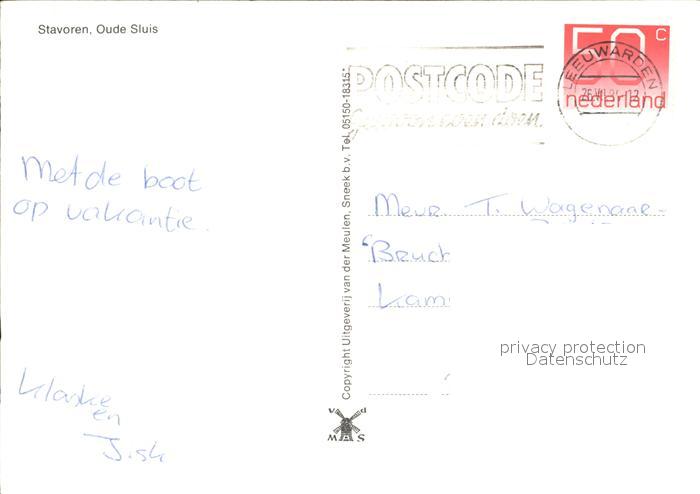 Stavoren, Oude Sluis
50 C
nederland
LEEUWARDEN
POSTCODE
gewoon even doen.
Met de boot
op vakantie.
Klaske
en
J.sk
Copyright Uitgeverij van der Meulen, Sneek b.v. Tel. 05150-18315*
v d
MAS
Mevr. T. Wagenaar-
Bruch
Kam
privacy protection
Datenschutz